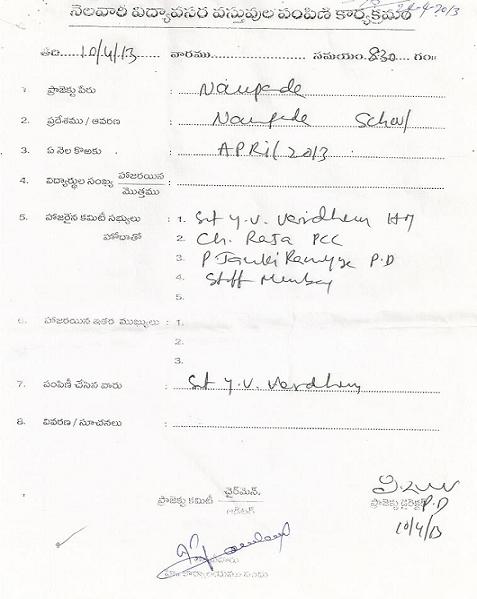 నెలవారీ విద్యావసర వస్తువుల పంపిణీ కార్యక్రమం
24-4-2013
తేది 10/4/13 వారము సమయం: 830 గం॥
1. ప్రాజెక్టు పేరు : Naupade
2. ప్రదేశము / ఆవరణ : Naupade School
3. ఏ నెల కొఱకు : APRIL 2013
4. విద్యార్థుల సంఖ్య హాజరయిన / మొత్తము :
5. హాజరైన కమిటీ సభ్యులు : 1. Smt Y.V. Vardhem HM
హోదాతో 2. Ch. Raja PCC
3. P Janki Ramyya P.D
4. Staff Member
5.
6. హాజరయిన ఇతర ముఖ్యులు : 1.
2.
3.
7. పంపిణీ చేసిన వారు : Smt Y.V. Vardhem
8. వివరణ / సూచనలు :
ప్రాజెక్టు కమిటీ చైర్‌మెన్.
ఆడిటర్
ప్రాజెక్టు డైరెక్టర్ P.D
10/4/13